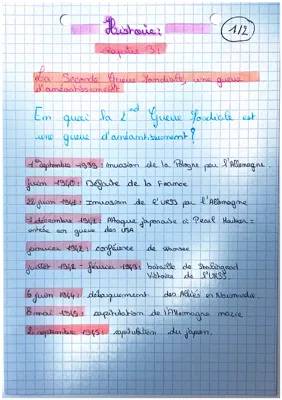 Histoire:
1/2
chapitre 3:
La Seconde Guerre Mondiale, une guerre
d'anéantissement
En quoi la 2nd Guerre Mondiale est
une guerre d'anéantissement?
1er septembre 1939: invasion de la Pologne par l'Allemagne.
juin 1940: Défaite de la France
22 juin 1941: Invasion de l'URSS par l'Allemagne
7 décembre 1941: Attaque japonaise à Pearl Harbor =
entrée en guerre des USA
janvier 1942: conférence de Wannsee
juillet 1942 - février 1943: bataille de Stalingrad
Victoire de l'URSS
6 juin 1944: débarquement des Alliés en Normandie
8 mai 1945: capitulation de l'Allemagne nazie
2 septembre 1945: capitulation du Japon.